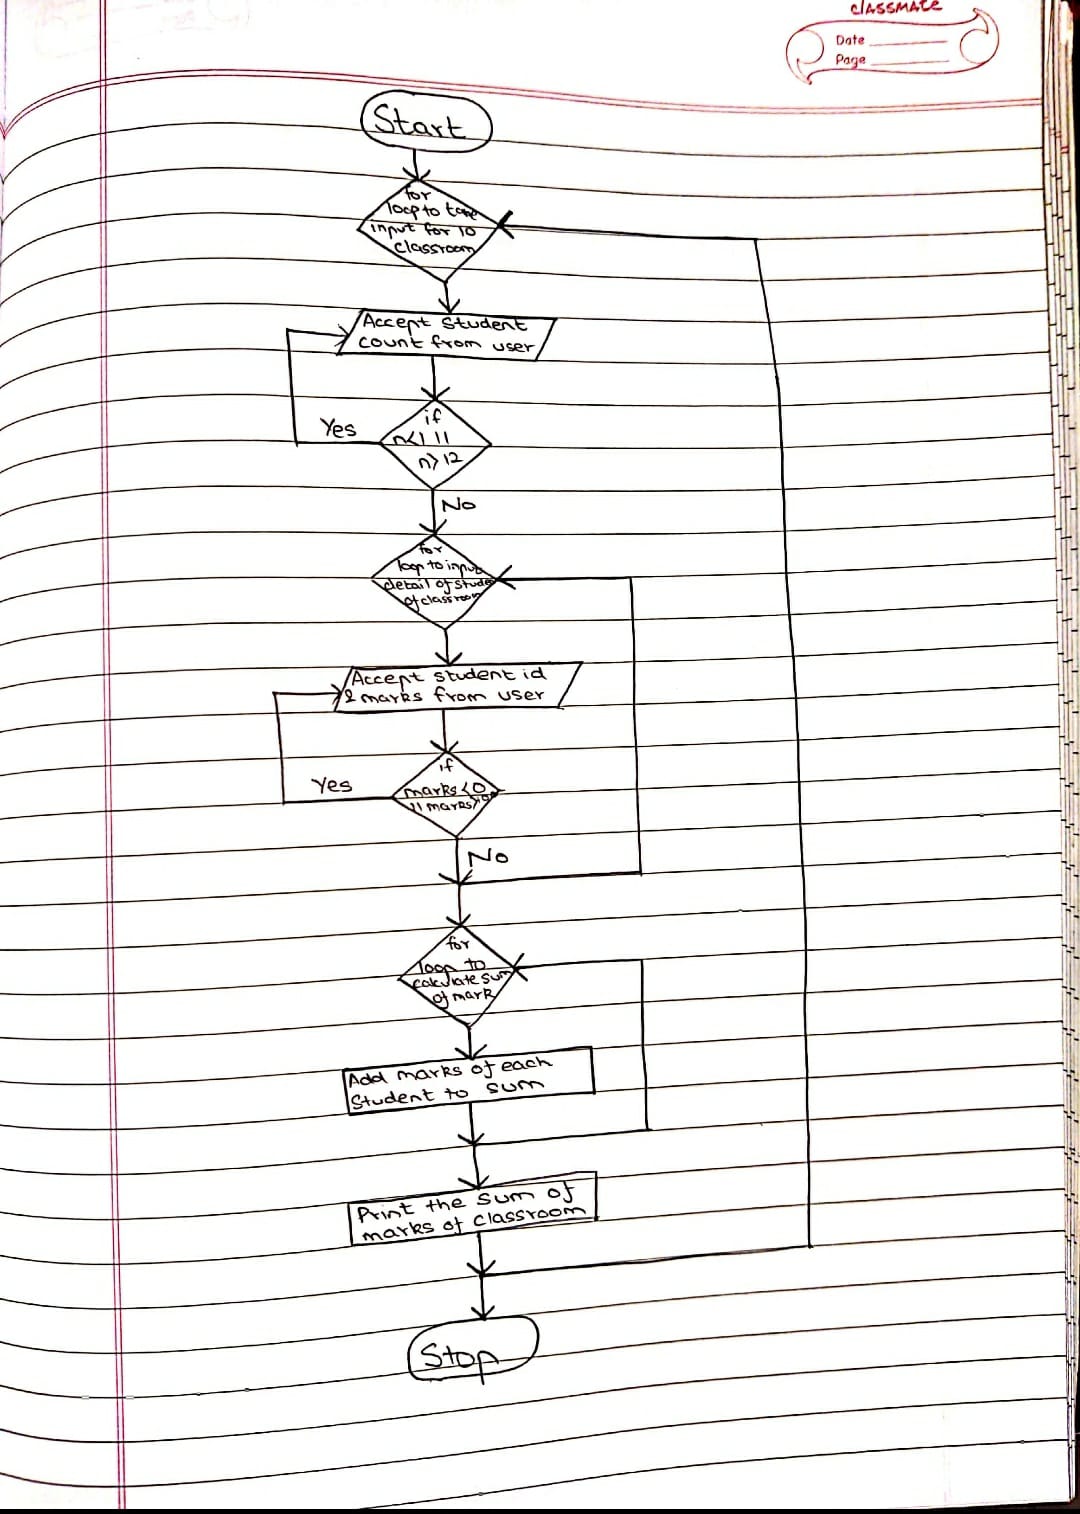 classmate
Date
Page
Start
for
loop to take
input for 10
classroom
Accept student
count from user
if
Yes
n<1 ||
n>12
No
for
loop to input
detail of stude
of classroom
Accept student id
& marks from user
if
Yes
marks <0
|| marks>
No
for
loop to
calculate sum
of mark
Add marks of each
Student to sum
Print the sum of
marks of classroom
Stop